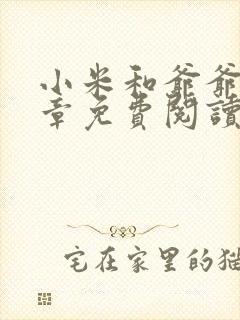 小米和爺爺
章免費閱讀
宅在家里的猫